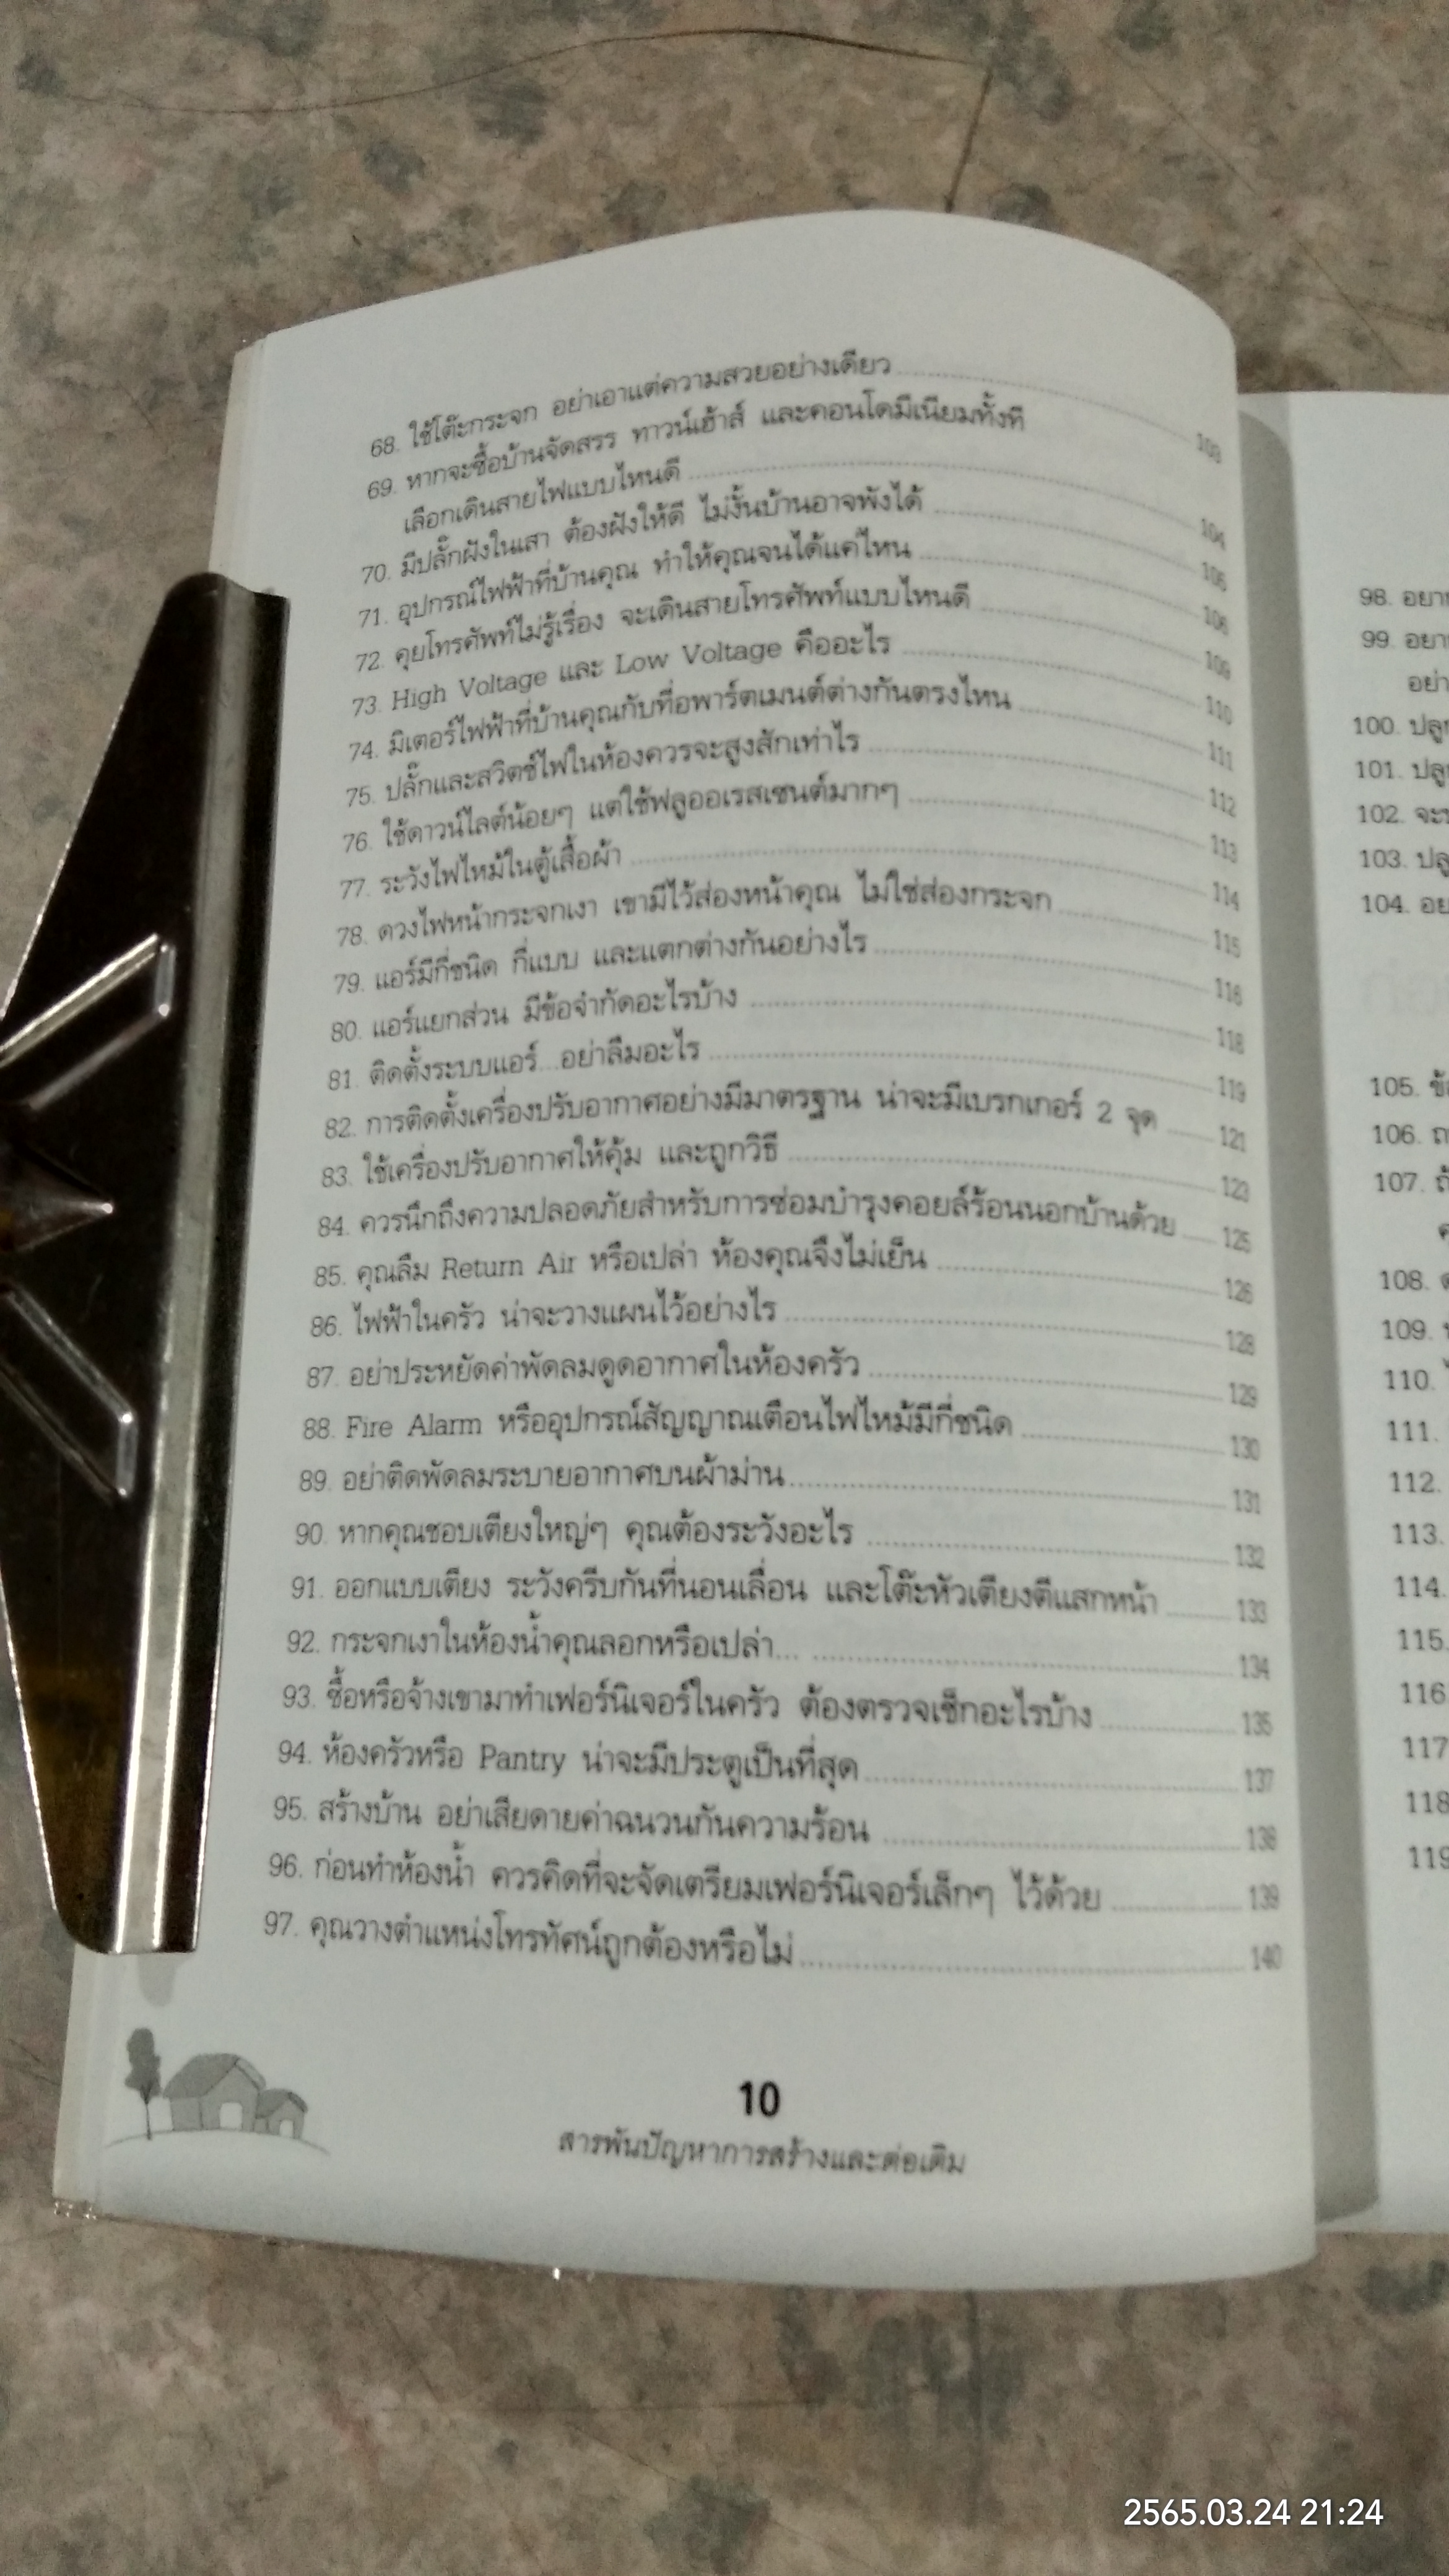 68. ใช้โต๊ะกระจก อย่าเอาแต่ความสวยอย่างเดียว ........ 103
69. หากจะซื้อบ้านจัดสรร ทาวน์เฮ้าส์ และคอนโดมีเนียมทั้งที
เลือกเดินสายไฟแบบไหนดี ........ 104
70. มีปลั๊กฝังในเสา ต้องฝังให้ดี ไม่งั้นบ้านอาจพังได้ ........ 105
71. อุปกรณ์ไฟฟ้าที่บ้านคุณ ทำให้คุณจนได้แค่ไหน ........ 106
72. คุยโทรศัพท์ไม่รู้เรื่อง จะเดินสายโทรศัพท์แบบไหนดี ........ 109
73. High Voltage และ Low Voltage คืออะไร ........ 110
74. มิเตอร์ไฟฟ้าที่บ้านคุณกับที่อพาร์ตเมนต์ต่างกันตรงไหน ........ 111
75. ปลั๊กและสวิตช์ไฟในห้องควรจะสูงสักเท่าไร ........ 112
76. ใช้ดาวน์ไลต์น้อยๆ แต่ใช้ฟลูออเรสเซนต์มากๆ ........ 113
77. ระวังไฟไหม้ในตู้เสื้อผ้า ........ 114
78. ดวงไฟหน้ากระจกเงา เขามีไว้ส่องหน้าคุณ ไม่ใช่ส่องกระจก ........ 115
79. แอร์มีกี่ชนิด กี่แบบ และแตกต่างกันอย่างไร ........ 116
80. แอร์แยกส่วน มีข้อจำกัดอะไรบ้าง ........ 118
81. ติดตั้งระบบแอร์...อย่าลืมอะไร ........ 119
82. การติดตั้งเครื่องปรับอากาศอย่างมีมาตรฐาน น่าจะมีเบรกเกอร์ 2 จุด ........ 121
83. ใช้เครื่องปรับอากาศให้คุ้ม และถูกวิธี ........ 123
84. ควรนึกถึงความปลอดภัยสำหรับการซ่อมบำรุงคอยล์ร้อนนอกบ้านด้วย ........ 125
85. คุณลืม Return Air หรือเปล่า ห้องคุณจึงไม่เย็น ........ 126
86. ไฟฟ้าในครัว น่าจะวางแผนไว้อย่างไร ........ 128
87. อย่าประหยัดค่าพัดลมดูดอากาศในห้องครัว ........ 129
88. Fire Alarm หรืออุปกรณ์สัญญาณเตือนไฟไหม้มีกี่ชนิด ........ 130
89. อย่าติดพัดลมระบายอากาศบนผ้าม่าน ........ 131
90. หากคุณชอบเตียงใหญ่ๆ คุณต้องระวังอะไร ........ 132
91. ออกแบบเตียง ระวังครีบกันที่นอนเลื่อน และโต๊ะหัวเตียงตีแสกหน้า ........ 133
92. กระจกเงาในห้องน้ำคุณลอกหรือเปล่า... ........ 134
93. ซื้อหรือจ้างเขามาทำเฟอร์นิเจอร์ในครัว ต้องตรวจเช็กอะไรบ้าง ........ 135
94. ห้องครัวหรือ Pantry น่าจะมีประตูเป็นที่สุด ........ 137
95. สร้างบ้าน อย่าเสียดายค่าฉนวนกันความร้อน ........ 138
96. ก่อนทำห้องน้ำ ควรคิดที่จะจัดเตรียมเฟอร์นิเจอร์เล็กๆ ไว้ด้วย ........ 139
97. คุณวางตำแหน่งโทรทัศน์ถูกต้องหรือไม่ ........ 140
10
สารพันปัญหาการสร้างและต่อเติม
98.
99.
100.
101.
102.
103.
104.
105.
106.
107.
108.
109.
110.
111.
112.
113.
114.
115.
116
117
118
119
2565.03.24 21:24